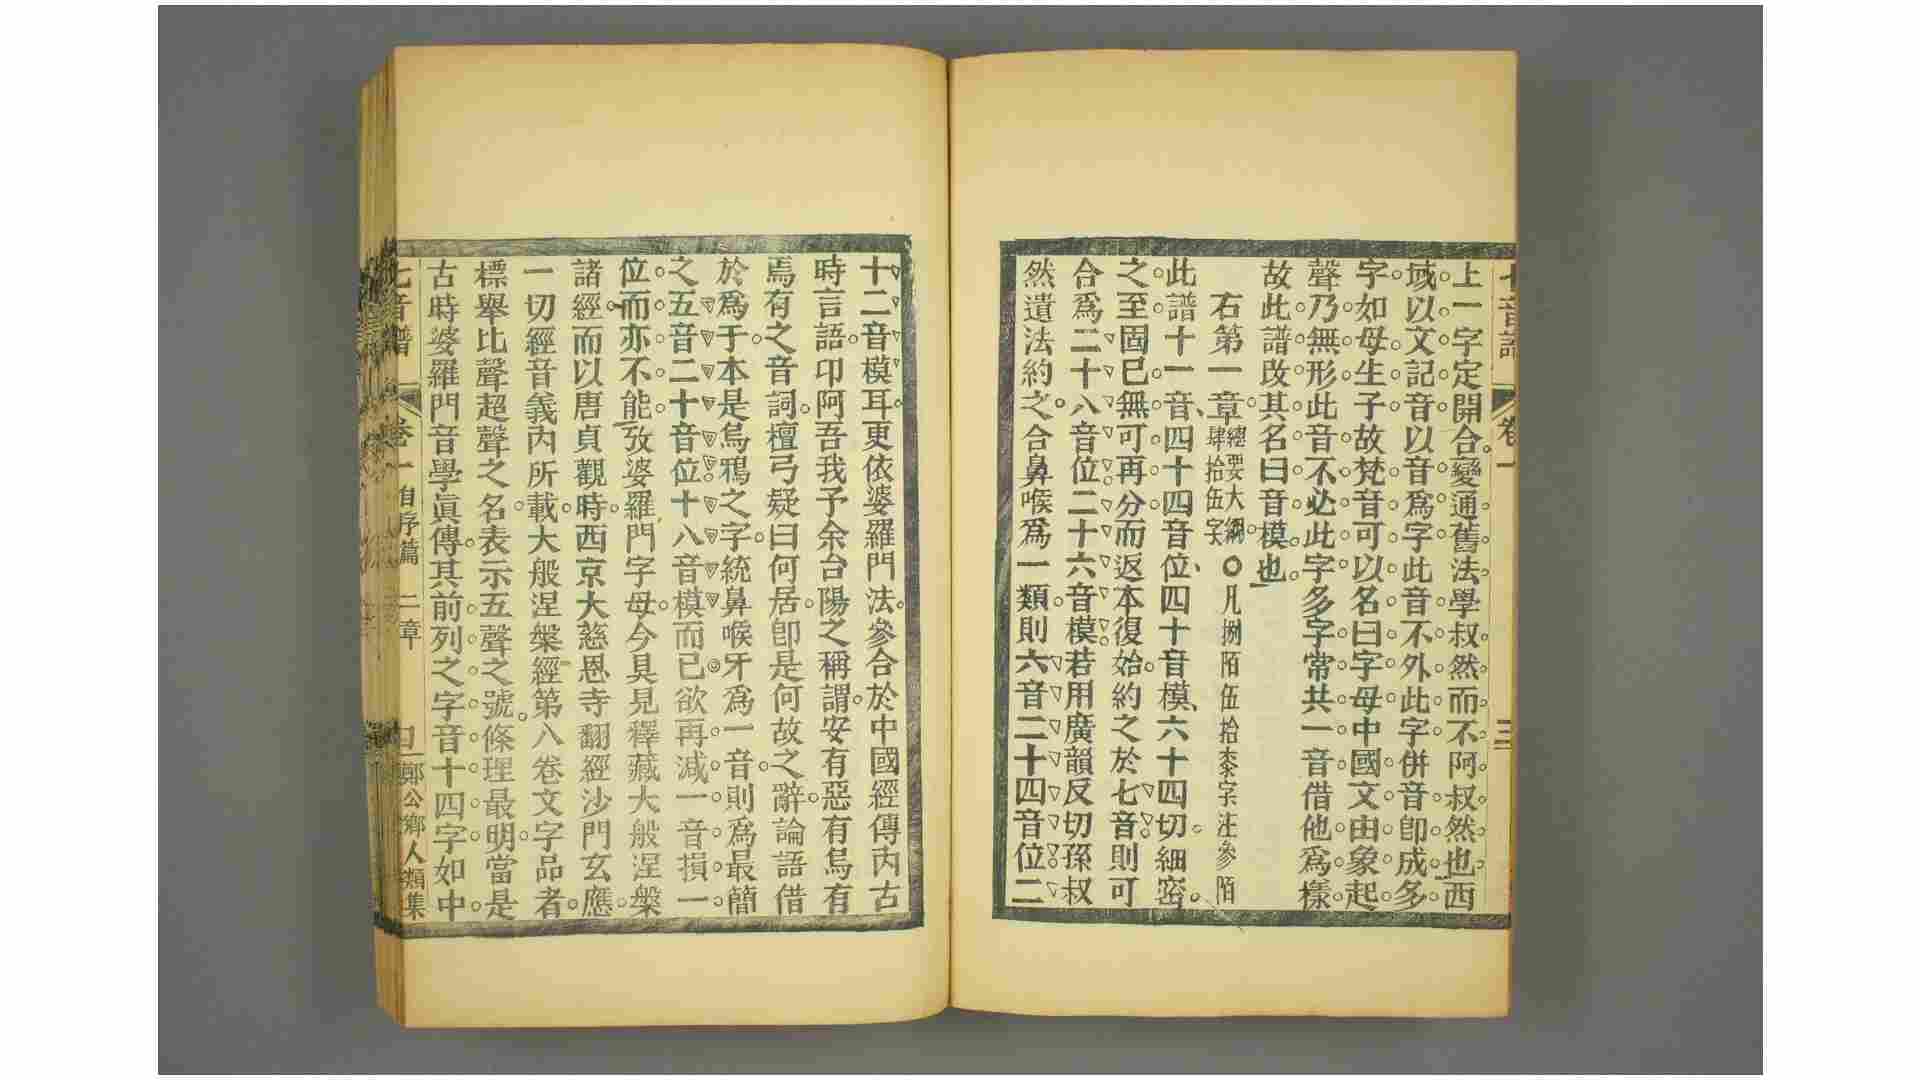 上一字定開合變通舊法學叔然而不阿叔然也西
域以文記音以音爲字此音不外此字併音卽成多
字如母生子故梵音可以名曰字母中國文由象起
聲乃無形此音不必此字多字常共一音借他爲樣
故此譜改其名曰音模也
右第一章總要大綱肆拾伍字〇凡捌陌伍拾柒字注參陌
此譜十一音四十四音位四十音模六十四切細密
之至固已無可再分而返本復始約之於七音則可
合爲二十八音位二十六音模若用廣韻反切孫叔
然遺法約之合鼻喉爲一類則六音二十四音位二
十二音模耳更依婆羅門法參合於中國經傳內古
時言語卬阿吾我予余台陽之稱謂安有惡有烏有
焉有之音詞檀弓疑曰何居卽是何故之辭論語借
於爲于本是烏鴉之字統鼻喉牙爲一音則爲最簡
之五音二十音位十八音模而已欲再減一音損一
位而亦不能攷婆羅門字母今具見釋藏大般涅槃
諸經而以唐貞觀時西京大慈恩寺翻經沙門玄應
一切經音義內所載大般涅槃經第八卷文字品者
標舉比聲超聲之名表示五聲之號條理最明當是
古時婆羅門音學眞傳其前列之字音十四字如中
七音譜 卷一 自序篇 二章 鄭公鄉人類集